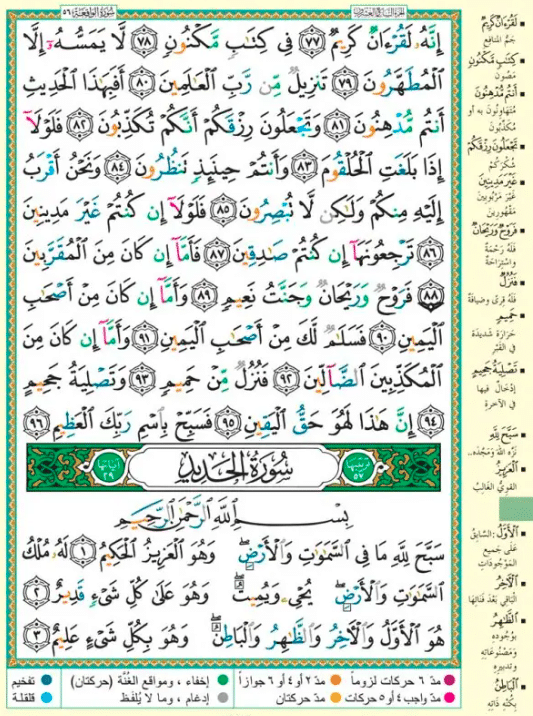 سُورَةُ الوَاقِعَةِ ٥٦
إِنَّهُۥ لَقُرْءَانٌ كَرِيمٌ ﴿٧٧﴾ فِى كِتَٰبٍ مَّكْنُونٍ ﴿٧٨﴾ لَّا يَمَسُّهُۥٓ إِلَّا
ٱلْمُطَهَّرُونَ ﴿٧٩﴾ تَنزِيلٌ مِّن رَّبِّ ٱلْعَٰلَمِينَ ﴿٨٠﴾ أَفَبِهَٰذَا ٱلْحَدِيثِ
أَنتُم مُّدْهِنُونَ ﴿٨١﴾ وَتَجْعَلُونَ رِزْقَكُمْ أَنَّكُمْ تُكَذِّبُونَ ﴿٨٢﴾ فَلَوْلَآ
إِذَا بَلَغَتِ ٱلْحُلْقُومَ ﴿٨٣﴾ وَأَنتُمْ حِينَئِذٍ تَنظُرُونَ ﴿٨٤﴾ وَنَحْنُ أَقْرَبُ
إِلَيْهِ مِنكُمْ وَلَٰكِن لَّا تُبْصِرُونَ ﴿٨٥﴾ فَلَوْلَآ إِن كُنتُمْ غَيْرَ مَدِينِينَ
﴿٨٦﴾ تَرْجِعُونَهَآ إِن كُنتُمْ صَٰدِقِينَ ﴿٨٧﴾ فَأَمَّآ إِن كَانَ مِنَ ٱلْمُقَرَّبِينَ
﴿٨٨﴾ فَرَوْحٌ وَرَيْحَانٌ وَجَنَّتُ نَعِيمٍ ﴿٨٩﴾ وَأَمَّآ إِن كَانَ مِنْ أَصْحَٰبِ
ٱلْيَمِينِ ﴿٩٠﴾ فَسَلَٰمٌ لَّكَ مِنْ أَصْحَٰبِ ٱلْيَمِينِ ﴿٩١﴾ وَأَمَّآ إِن كَانَ مِنَ
ٱلْمُكَذِّبِينَ ٱلضَّآلِّينَ ﴿٩٢﴾ فَنُزُلٌ مِّنْ حَمِيمٍ ﴿٩٣﴾ وَتَصْلِيَةُ جَحِيمٍ
﴿٩٤﴾ إِنَّ هَٰذَا لَهُوَ حَقُّ ٱلْيَقِينِ ﴿٩٥﴾ فَسَبِّحْ بِٱسْمِ رَبِّكَ ٱلْعَظِيمِ ﴿٩٦﴾
ترتيبها ٥٧ سُورَةُ الحَدِيدِ آياتها ٢٩
بِسْمِ ٱللَّهِ ٱلرَّحْمَٰنِ ٱلرَّحِيمِ
سَبَّحَ لِلَّهِ مَا فِى ٱلسَّمَٰوَٰتِ وَٱلْأَرْضِ وَهُوَ ٱلْعَزِيزُ ٱلْحَكِيمُ ﴿١﴾ لَهُۥ مُلْكُ
ٱلسَّمَٰوَٰتِ وَٱلْأَرْضِ يُحْىِۦ وَيُمِيتُ وَهُوَ عَلَىٰ كُلِّ شَىْءٍ قَدِيرٌ ﴿٢﴾
هُوَ ٱلْأَوَّلُ وَٱلْءَاخِرُ وَٱلظَّٰهِرُ وَٱلْبَاطِنُ وَهُوَ بِكُلِّ شَىْءٍ عَلِيمٌ ﴿٣﴾
لَقُرْءَانٌ كَرِيمٌ
جَمُّ المنافِعِ
كِتَٰبٍ مَّكْنُونٍ
مَصُونٍ
أَنتُم مُّدْهِنُونَ
مُتَهَاوِنُونَ به أو
مُكَذِّبُونَ
تَجْعَلُونَ رِزْقَكُمْ
شُكْرَكُمْ
غَيْرَ مَدِينِينَ
غَيْرَ مَرْبُوبِينَ
مَقْهُورِينَ
فَرَوْحٌ وَرَيْحَانٌ
فَلَهُ رَحْمَةٌ
واسْتِرَاحَةٌ
فَنُزُلٌ
فَلَهُ قِرىً وضِيافَةٌ
حَمِيمٍ
حَرَارَةٍ شديدة
في القَبْرِ
تَصْلِيَةُ جَحِيمٍ
إدْخَالٌ فيها
في الآخرة
سَبَّحَ لِلَّهِ
نَزَّه اللهَ ومَجَّدَه..
الْعَزِيزُ
القويُّ الغالِبُ
الْأَوَّلُ: السابِقُ
عَلَى جَمِيعِ
المَوْجُودَاتِ
الْآخِرُ
الباقِي بَعْدَ فَنَائِهَا
الظَّٰهِرُ
بوُجُودِهِ
ومَصْنُوعَاتِهِ
وتدبيرِهِ
الْبَاطِنُ
بِكُنْهِ ذاتِهِ
مدّ ٦ حركات لزوماً مدّ ٢ أو ٤ أو ٦ جوازاً إخفاء، ومواقع الغُنَّة (حركتان) تفخيم
مدّ واجب ٤ أو ٥ حركات مدّ حركتان إدغام، وما لا يُلفَظ قلقلة